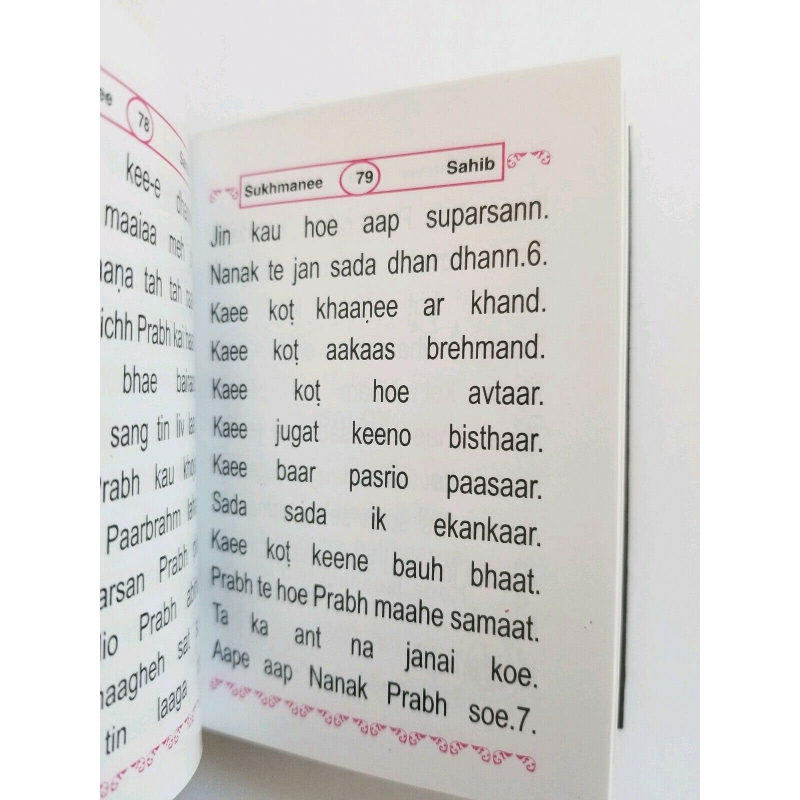 ee 78
kee-e
maaiaa meh
tah tah
ichh Prabh kai
bhae
sang tin liv
Prabh kau
Paarbrahm
Prabh
Prabh
sat
tin laaga
Sukhmanee 79 Sahib
Jin kau hoe aap suparsann.
Nanak te jan sada dhan dhann.6.
Kaee koṭ khaaṇee ar khand.
Kaee koṭ aakaas brehmand.
Kaee koṭ hoe avtaar.
Kaee jugat keeno bisthaar.
Kaee baar pasrio paasaar.
Sada sada ik ekankaar.
Kaee koṭ keene bauh bhaat.
Prabh te hoe Prabh maahe samaat.
Ta ka ant na janai koe.
Aape aap Nanak Prabh soe.7.